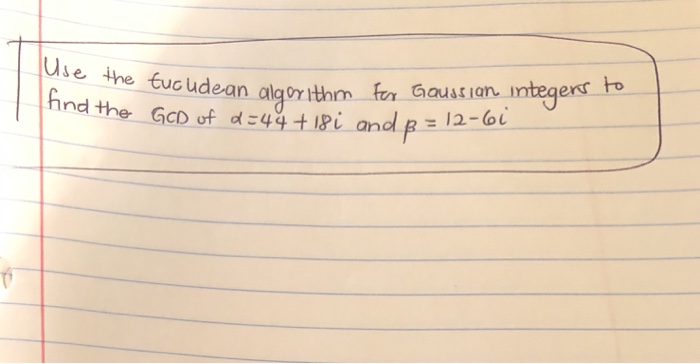 Use the Eucludean algorithm for Gaussian integers to
find the GCD of α=44+18i and β = 12-6i